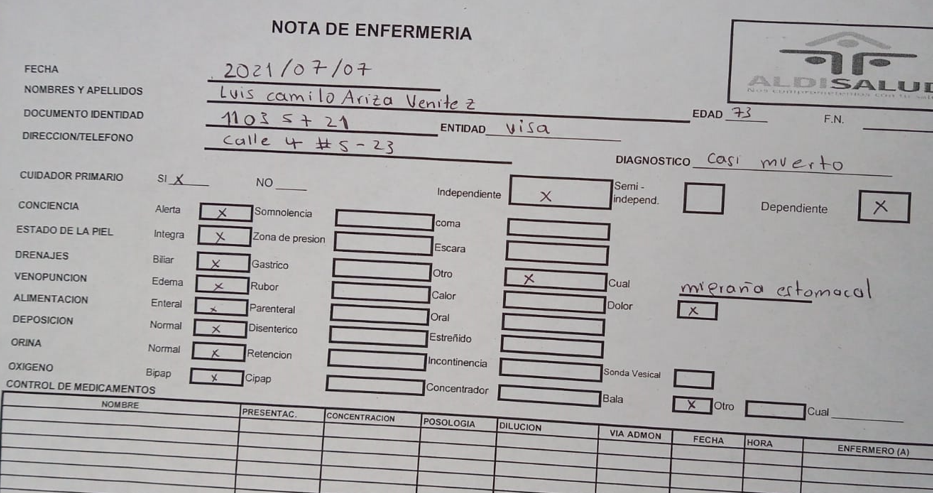 NOTA DE ENFERMERIA
ALDISALUD
FECHA 2021/07/07
NOMBRES Y APELLIDOS Luis camilo Ariza Venitez EDAD 73 F.N.
DOCUMENTO IDENTIDAD 1103 5721 ENTIDAD visa
DIRECCION/TELEFONO calle 4 #5-23
DIAGNOSTICO casi muerto
CUIDADOR PRIMARIO SI X NO Independiente X Semi-independ. Dependiente X
CONCIENCIA Alerta X Somnolencia coma
ESTADO DE LA PIEL Integra X Zona de presion Escara
DRENAJES Biliar X Gastrico Otro X Cual migraña estomacal
VENOPUNCION Edema X Rubor Calor Dolor X
ALIMENTACION Enteral X Parenteral Oral
DEPOSICION Normal X Disenterico Estreñido
ORINA Normal X Retencion Incontinencia Sonda Vesical
OXIGENO Bipap X Cipap Concentrador Bala X Otro Cual
CONTROL DE MEDICAMENTOS
NOMBRE PRESENTAC. CONCENTRACION POSOLOGIA DILUCION VIA ADMON FECHA HORA ENFERMERO (A)